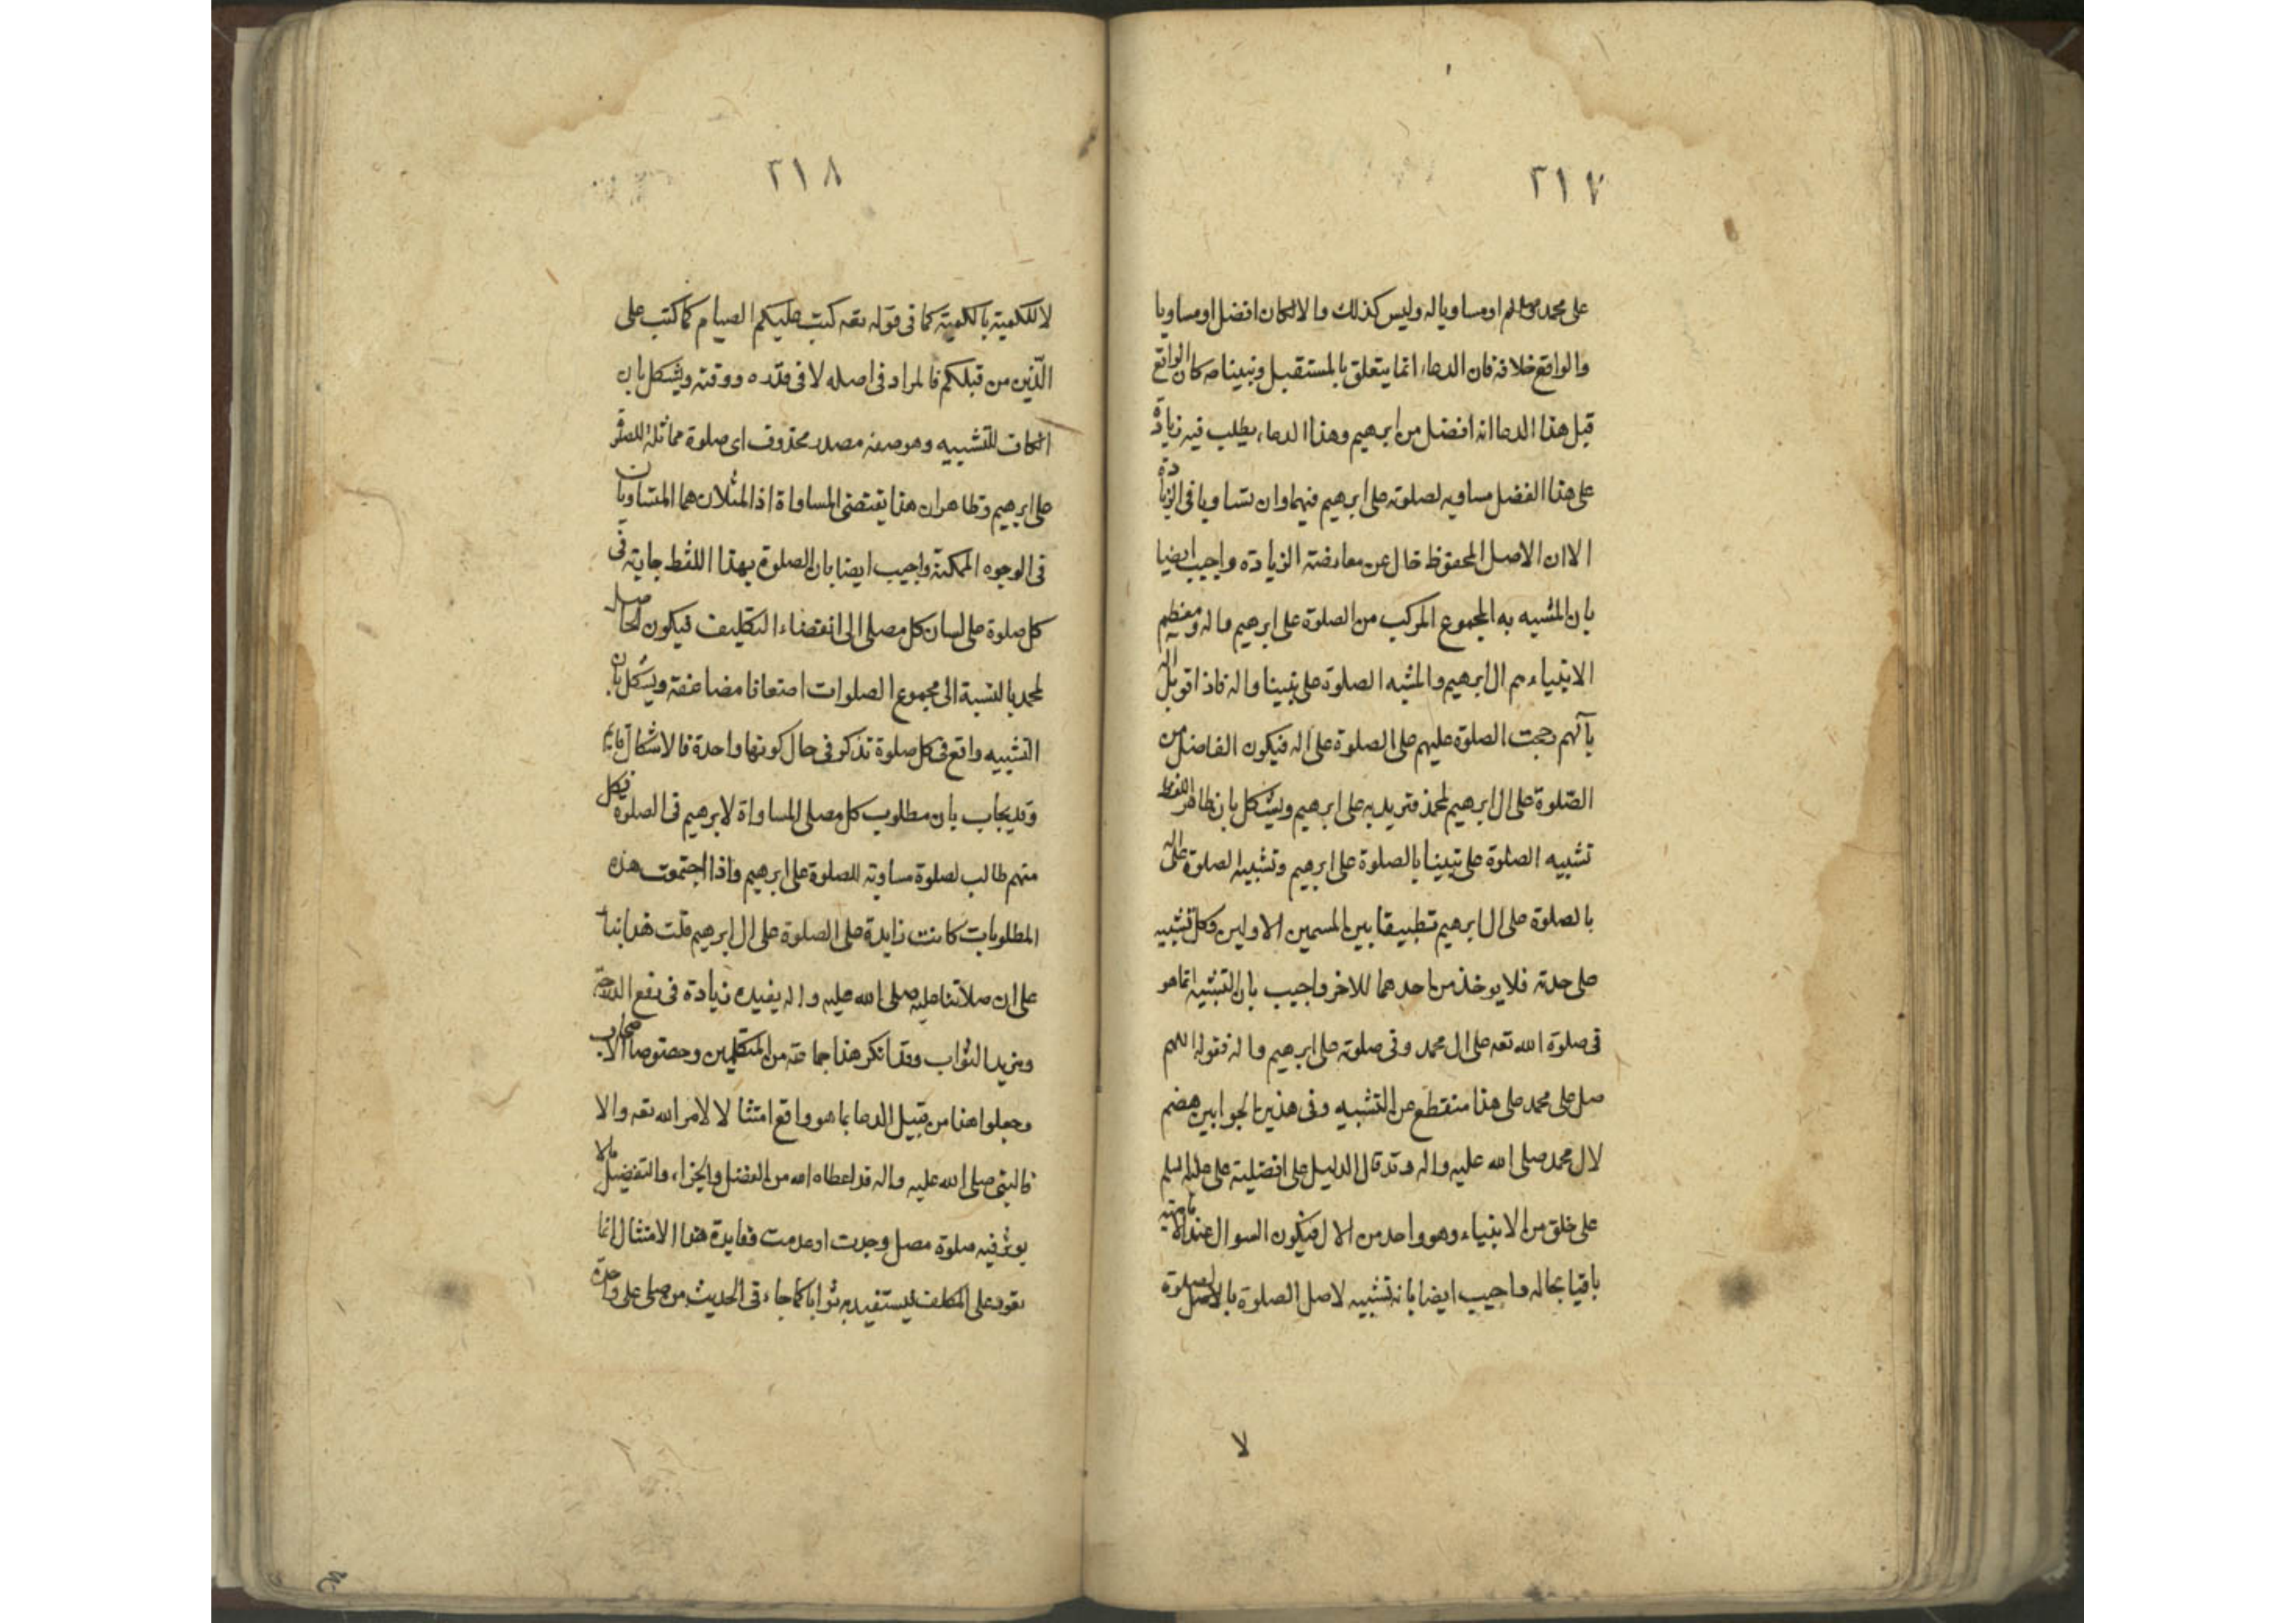 ٢١٧
على محمد وآله او مساويا له وليس كذلك والا لكان افضل او مساويا
والواقع خلافه فان الدعاء انما يتعلق بالمستقبل ونبينا صه كان الواقع
قبل هذا الدعا انه افضل من ابرهيم وهذا الدعاء يطلب فيه زيادة
على هذا الفضل مساويه لصلوته على ابرهيم فيهما وان تساويا فى الزيادة
الا ان الاصل المحفوظ خال عن معارضة الزيادة واجيب ايضا
بان المشبه به المجموع المركب من الصلوة على ابرهيم واله ومعظم
الانبياء هم ال ابرهيم والمشبه الصلوة على نبينا واله فاذا قوبل اله
بآلهم رجحت الصلوة عليهم على الصلوة على اله فيكون الفاضل من
الصّلوة على ال ابرهيم لمحمد فتزيد به على ابرهيم ويشكل بان ظاهر اللفظ
تشبيه الصلوة على نبينا بالصلوة على ابرهيم وتشبيه الصلوة على اله
بالصلوة على ال ابرهيم تطبيقا بين المسمين الاولين وكل تشبيه
على حدته فلا يوخذ من احدهما للاخر واجيب بان التشبيه انما هو
فى صلوة الله تعه على ال محمد وفى صلوته على ابرهيم واله فقوله اللهم
صل على محمد على هذا منقطع عن التشبيه وفى هذين الجوابين هضم
لال محمد صلى الله عليه واله وقد قال الدليل على افضلية على عليه السلم
على خلق من الانبياء وهو واحد من الال فيكون السوال عند الامامية
باقيا بحاله واجيب ايضا بانه تشبيه لاصل الصلوة بالاصل الصلوة
لا
٢١٨
لا للكمية بالكمية كما فى قوله تعه كتب عليكم الصيام كما كتب على
الّذين من قبلكم فالمراد فى اصله لا فى قدره ووقته ويشكل بان
الكاف للتشبيه وهو صفه مصدر محذوف اى صلوة مماثلة للصلوة
على ابرهيم وظاهر ان هذا يقتضى المساواة اذ المثلان هما المتساويان
فى الوجوه الممكنة واجيب ايضا بان الصلوة بهذا اللفظ جارية فى
كل صلوة على لسان كل مصلى الى انقضاء التكليف فيكون الحاصل
لمحمد بالنسبة الى مجموع الصلوات اضعافا مضاعفة ويشكل بان
التشبيه واقع فى كل صلوة تذكر فى حال كونها واحدة فالاشكال قايم
وقد يجاب بان مطلوب كل مصلى المساواة لابرهيم فى الصلوة فكل
منهم طالب لصلوة مساوية للصلوة على ابرهيم واذا اجتمعت هذه
المطلوبات كانت زايدة على الصلوة على ال ابرهيم قلت هذا بناء
على ان صلاتنا عليه صلى الله عليه واله يفيده زيادة فى رفع الدرجة
ومزيد الثواب وقد انكر هذا جماعة من المتكلمين وخصوصا الاصحاب
وجعلوا هذا من قبيل الدعا بما هو واقع امتثالا لامر الله تعه والا
فالنبى صلى الله عليه واله قد اعطاه الله من الفضل والجزاء والتفضيل ما لا
يوثر فيه صلوة مصل وجدت او عدمت ففايدة هذا الامتثال انما
يعود على المكلف ليستفيد به ثوابا كما جاء فى الحديث من صلى على واحدة